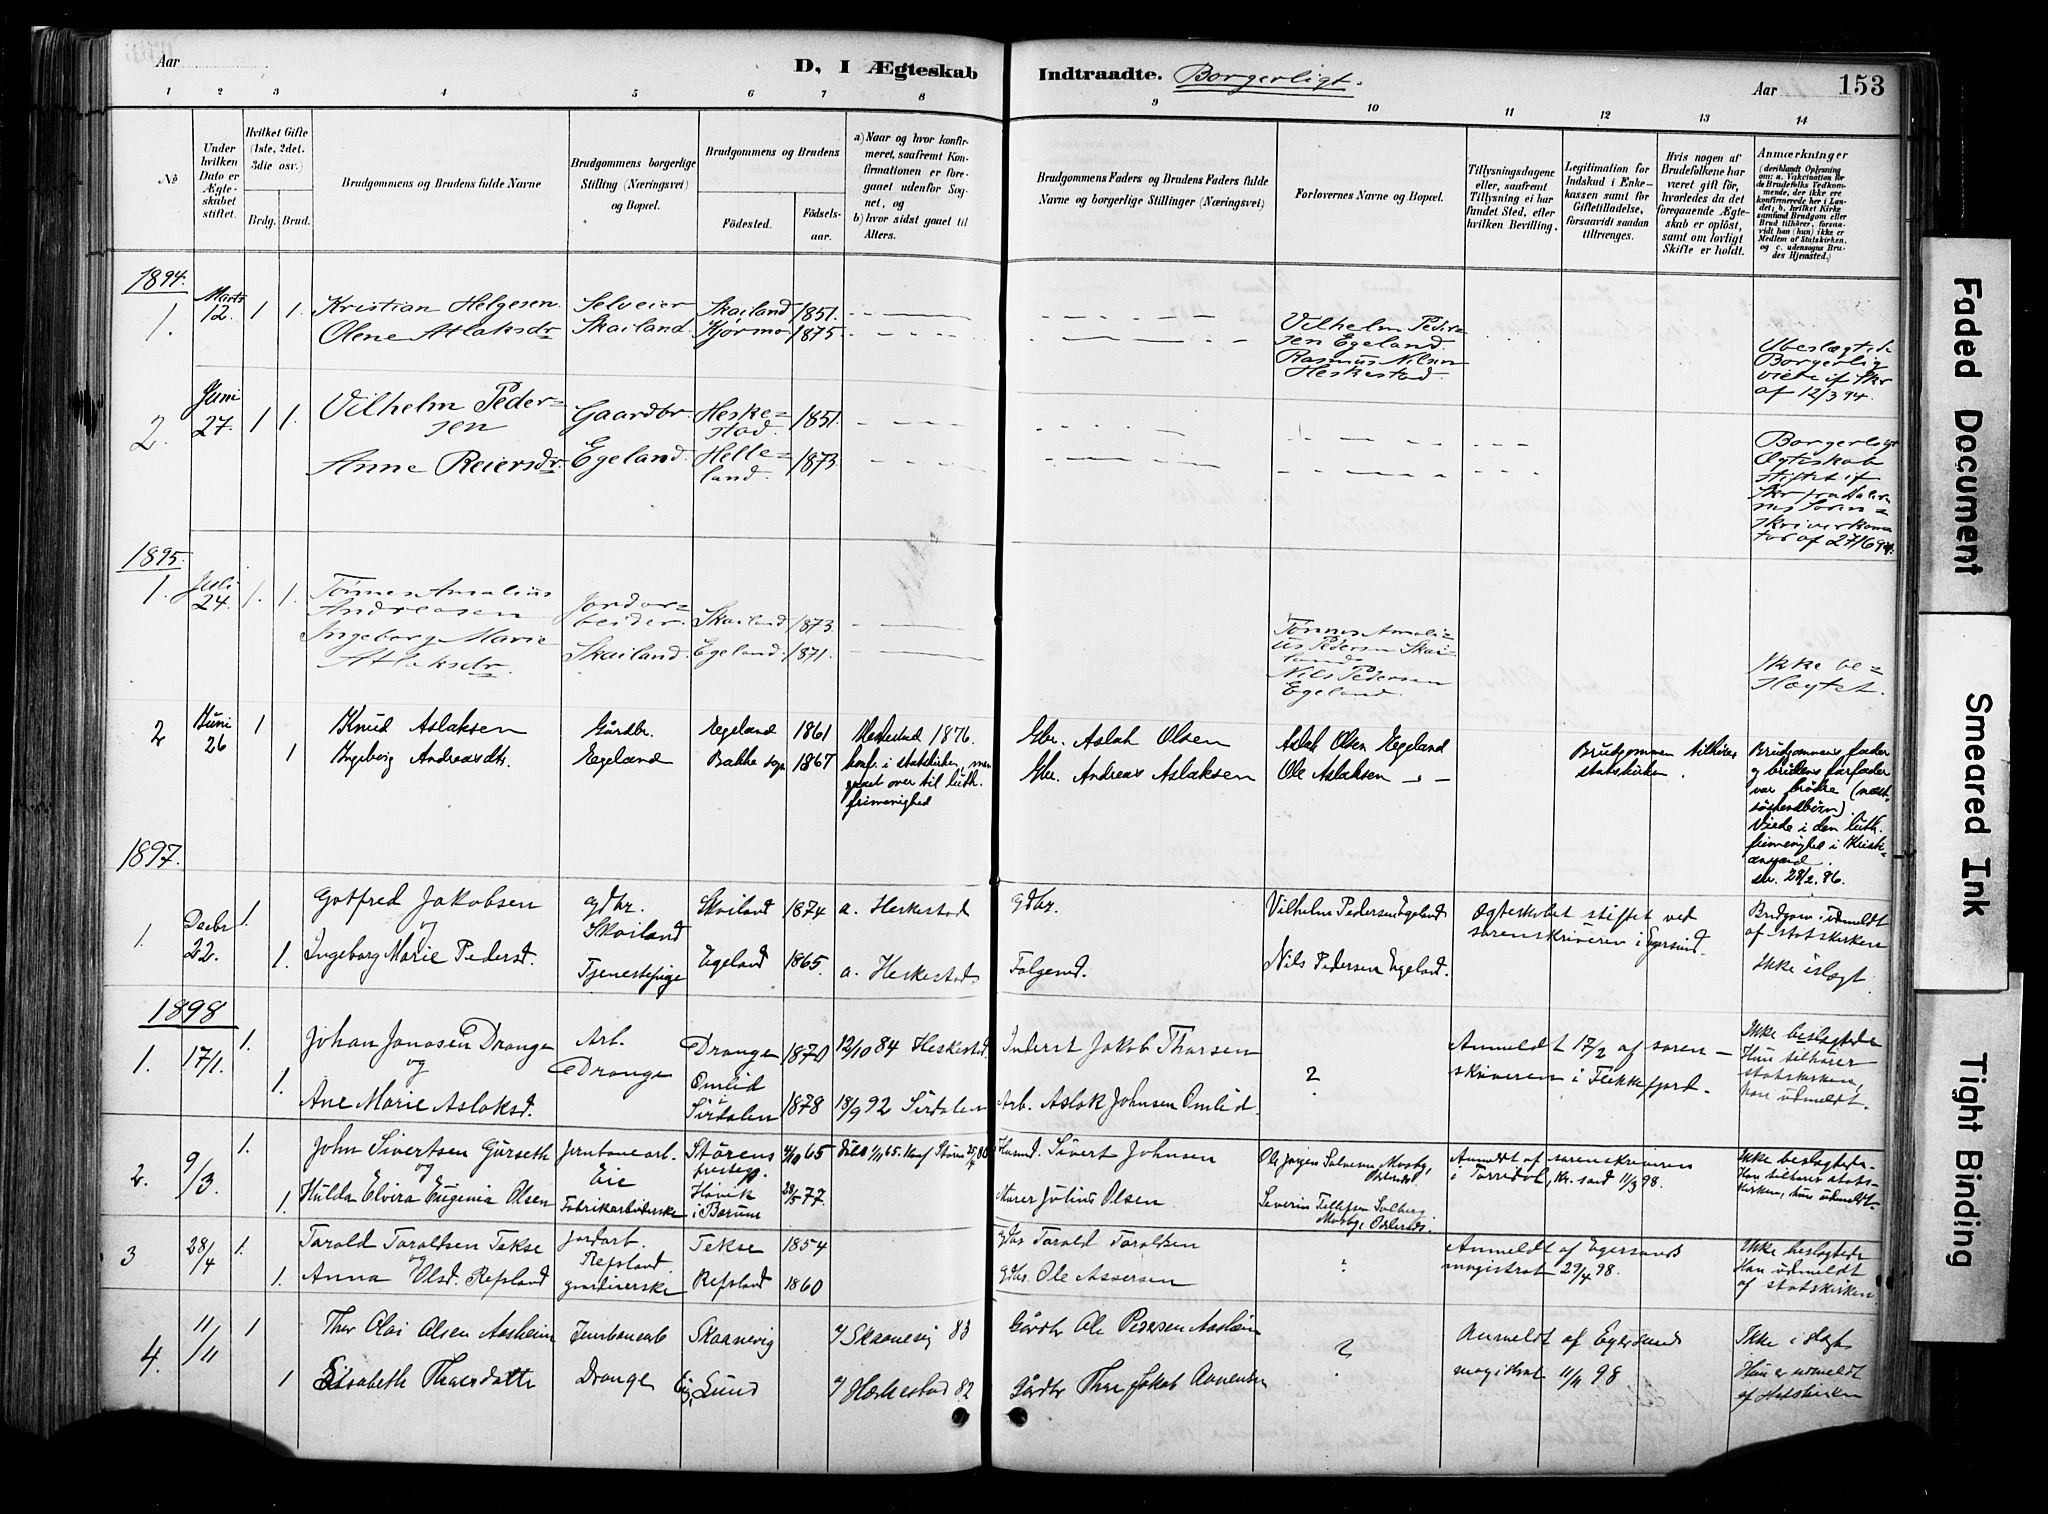 Aar
D, I Ægteskab
Indtraadte. Borgerligt.
Aar
153
1 2 3 4 5 6 7 8 9 10 11 12 13 14
No
Under hvilken Dato er Ægteskabet stiftet.
Hvilket Gifte (1ste, 2det. 3die osv.)
Brdg. Brud.
Brudgommens og Brudens fulde Navne
Brudgommens borgerlige Stilling (Næringsvei) og Bopæl.
Brudgommens og Brudens
Födested.
Födselsaar.
a) Naar og hvor konfirmeret, saafremt Konfirmationen er foregaaet udenfor Sognet, og
b) hvor sidst gaaet til Alters.
Brudgommens Faders og Brudens Faders fulde Navne og borgerlige Stillinger (Næringsvei)
Forlovernes Navne og Bopæl.
Tillysningsdagene eller, saafremt Tillysning ei har fundet Sted, efter hvilken Bevilling.
Legitimation for Indskud i Enkekassen samt for Giftetilladelse, forsaavidt saadan tiltrænges.
Hvis nogen af Brudefolkene har været gift før, hvorledes da det foregaaende Ægteskab er oplöst, samt om lovligt Skifte er holdt.
Anmærkninger
(deriblandt Oplysning om: a. Vaccination for de Brudefolks Vedkommende, der ikke ere konfirmerede her i Landet; b, hvilket Kirkesamfund Brudgom eller Brud tilhörer, forsaavidt han (hun) ikke er Medlem af Statskirken, og c. udensogns Brudes Hjemsted.)
1894.
1. Marts 12. 1 1. Kristian Helgesen Selveier Skailand 1851.
Olene Atlaksdr Skailand. Hjørmo 1875.
Vilhelm Pedersen Egeland.
Rasmus Nilsen Heskestad.
Ubeslægtede
Borgerlig
viede if Skr
af 12/3 94.
2. Juni 27. 1 1. Vilhelm Pedersen Gaardbr. Heskestad. 1851.
Anne Reiersdr. Egeland. Helleland. 1873.
Borgerligt
Ægteskab
stiftet if
Skr fra Dalernes Sorenskriverkontor af 27/6 94.
1895.
1. Juli 24. 1. 1. Tønnes Amalius Andreasen Jordarbeider. Skailand 1873.
Ingeborg Marie Atlaksdr. Skailand. Egeland. 1871.
Tønnes Amalius Pedersen Skailand
Nils Pedersen Egeland.
Ikke beslægtet.
2 Juni 26 1 Knud Aslaksen Gårdbr. Egeland 1861 Heskestad 1876. Gbr. Aslak Olsen Aslak Olsen Egeland Brudgommen tilhører statskirken.
1 Ingeborg Andreasdtr. Egeland Bakke sogn 1867 konf. i statskirken, men gaaet over til luth. frimenighed Gbr. Andreas Aslaksen Ole Aslaksen - , -
Brudgommens fader
og brudens farfader
var brødre (næstsøskendbørn)
Viede i den luth.
frimenighed i Kristiansand
1897.
1. Decbr 22. 1. Gotfred Jakobsen gdbr. Skailand Skailand 1874 a. Heskestad gdbr. Vilhelm Pedersen Egeland Ægteskabet stiftet ved sorenskriveren i Egersund. Brudgom. udmeldt af statskirken
og
1. Ingeborg Marie Pedersd. Tjenestepige Egeland 1865. a. Heskestad Nils Pedersen Egeland. Ikke i slægt
1898
1. 17/1. 1. Johan Jonassen Drange Arb. Drange Drange 1870 12/10 84 Heskestad. Inderst Jakob Thorsen ? Anmeldt 17/2 af sorenskriveren i Flekkefjord. Ikke beslægtede
og
1. Ane Marie Aslaksd. Omlid i Sirdalen 1878 18/9 92 Sirdalen Arb. Aslak Johnsen Omlid. Hun tilhører statskirken, han udmeldt.
2. 9/3. 1. John Sivertsen Gurseth Jernbanearb. Eie Størens prestegj. 65 Husmd. Sivert Johnsen Ole Jørgen Salvesen Mosby, Oddernes Anmeldt af sorenskriveren i Torridal, Kr. sand 11/3 98. Ikke beslægtede.
og
1. Hulda Elvira Eugenia Olsen Fabrikarbeiderske Høvik i Bærum 77. Murer Julius Olsen Severin Tellefsen Solberg. Mosby, Oddernes. Han tilhører statskirken, hun udmeldt
3 28/4 1. Tarald Taraldsen Tekse Jordarb. Refsland. Tekse 1854 gdbr Tarald Taraldsen ? Anmeldt af Egersunds magistrat 29/4 98. Ikke beslægtede
og
1. Anna Olsd. Refsland Refsland 1860 gdbr. Ole Assersen Han udmeldt af statskirken
4. 11/11 1 Thor Olai Olsen Aasheim Jernbanearb Drange Skaanevig Skaanevig 83 Gårdbr Ole Pedersen Aasheim ? Anmeldt af Egersunds magistrat 11/11 98 Ikke i slægt
1 Elisabeth Thorsdatter Lund Heskestad 82 Gårdbr Thor Jakob Aanensen Hun er udmeldt af statskirken
Faded Document
Smeared Ink
Tight Binding